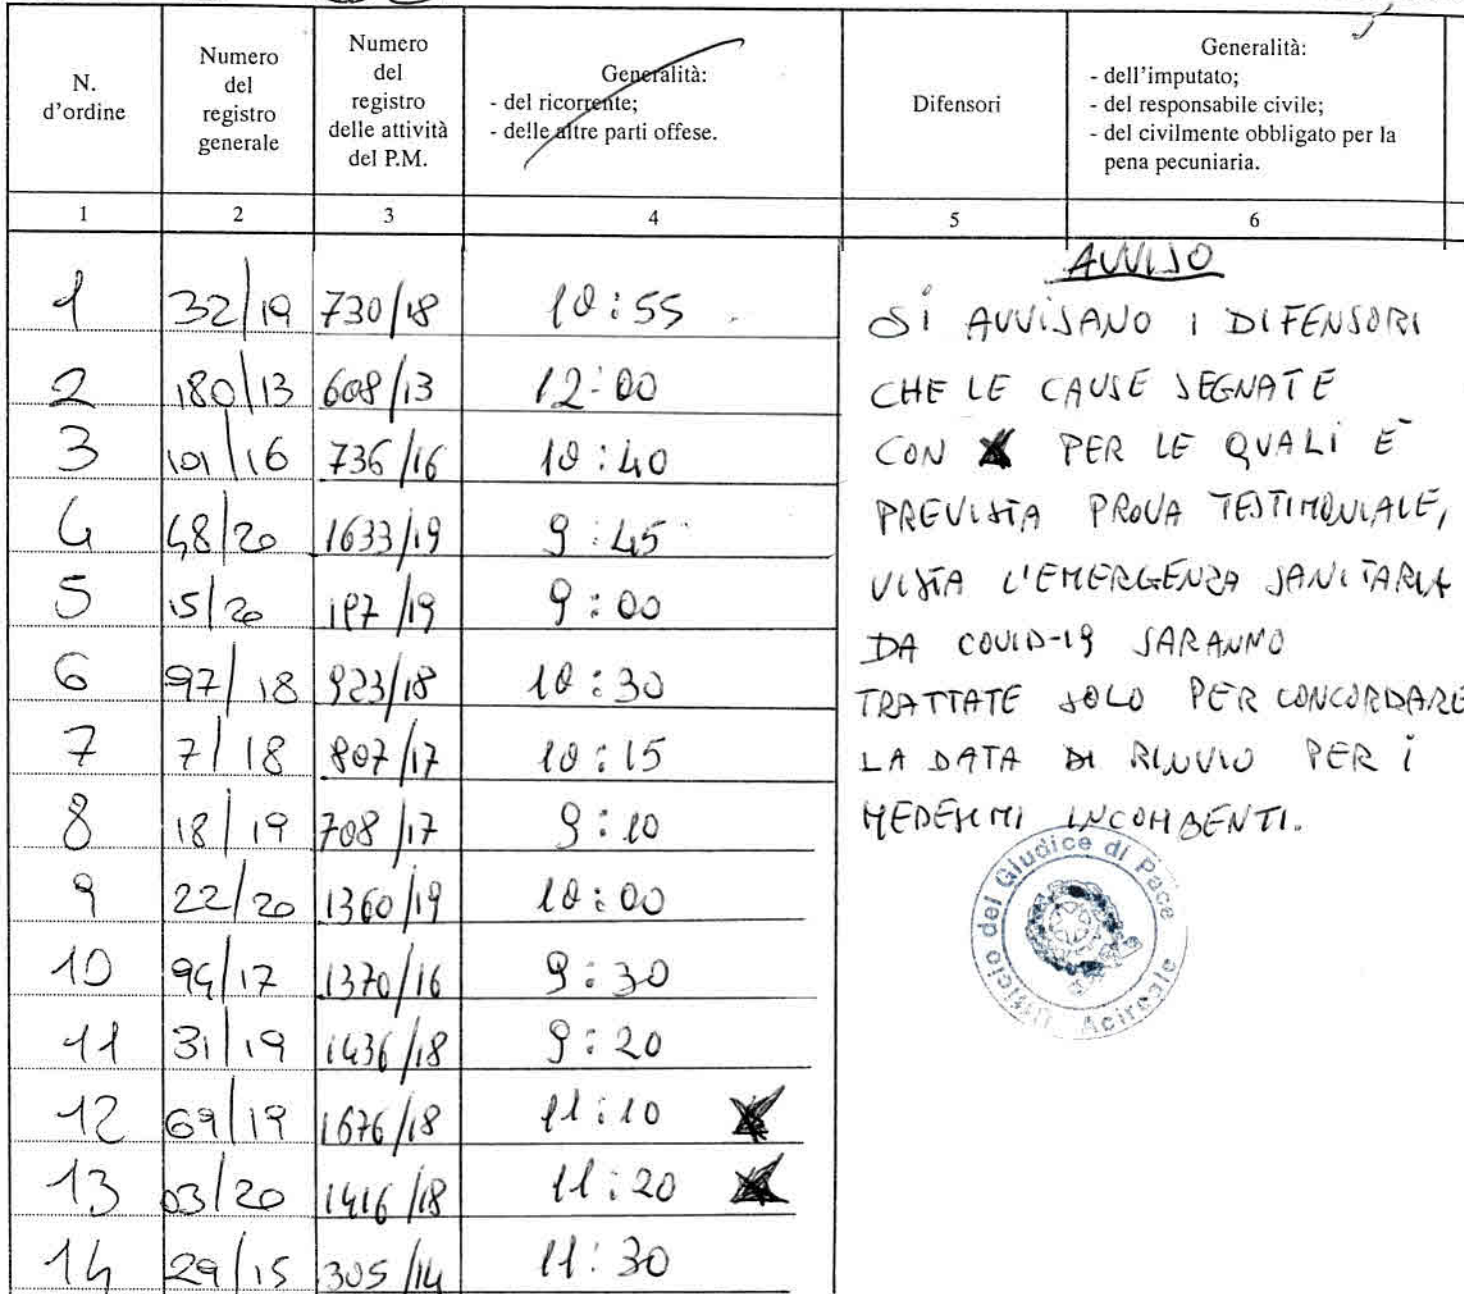 N. d'ordine
Numero del registro generale
Numero del registro delle attività del P.M.
Generalità:
- del ricorrente;
- delle altre parti offese.
Difensori
Generalità:
- dell'imputato;
- del responsabile civile;
- del civilmente obbligato per la
pena pecuniaria.
1 2 3 4 5 6
1 32/19 730/18 10:55
2 180/13 608/13 12:00
3 101/16 736/16 10:40
4 48/20 1633/19 9:45
5 15/20 197/19 9:00
6 97/18 923/18 10:30
7 7/18 807/17 10:15
8 18/19 708/17 9:10
9 22/20 1360/19 10:00
10 94/17 1370/16 9:30
11 31/19 1436/18 9:20
12 69/19 1676/18 11:10
13 03/20 1416/18 11:20
14 29/15 305/14 11:30
AVVISO
SI AVVISANO I DIFENSORI
CHE LE CAUSE SEGNATE
CON PER LE QUALI È
PREVISTA PROVA TESTIMONIALE,
VISTA L'EMERGENZA SANITARIA
DA COVID-19 SARANNO
TRATTATE SOLO PER CONCORDARE
LA DATA DI RINVIO PER I
MEDESIMI INCOMBENTI.
Ufficio del Giudice di Pace
Acireale